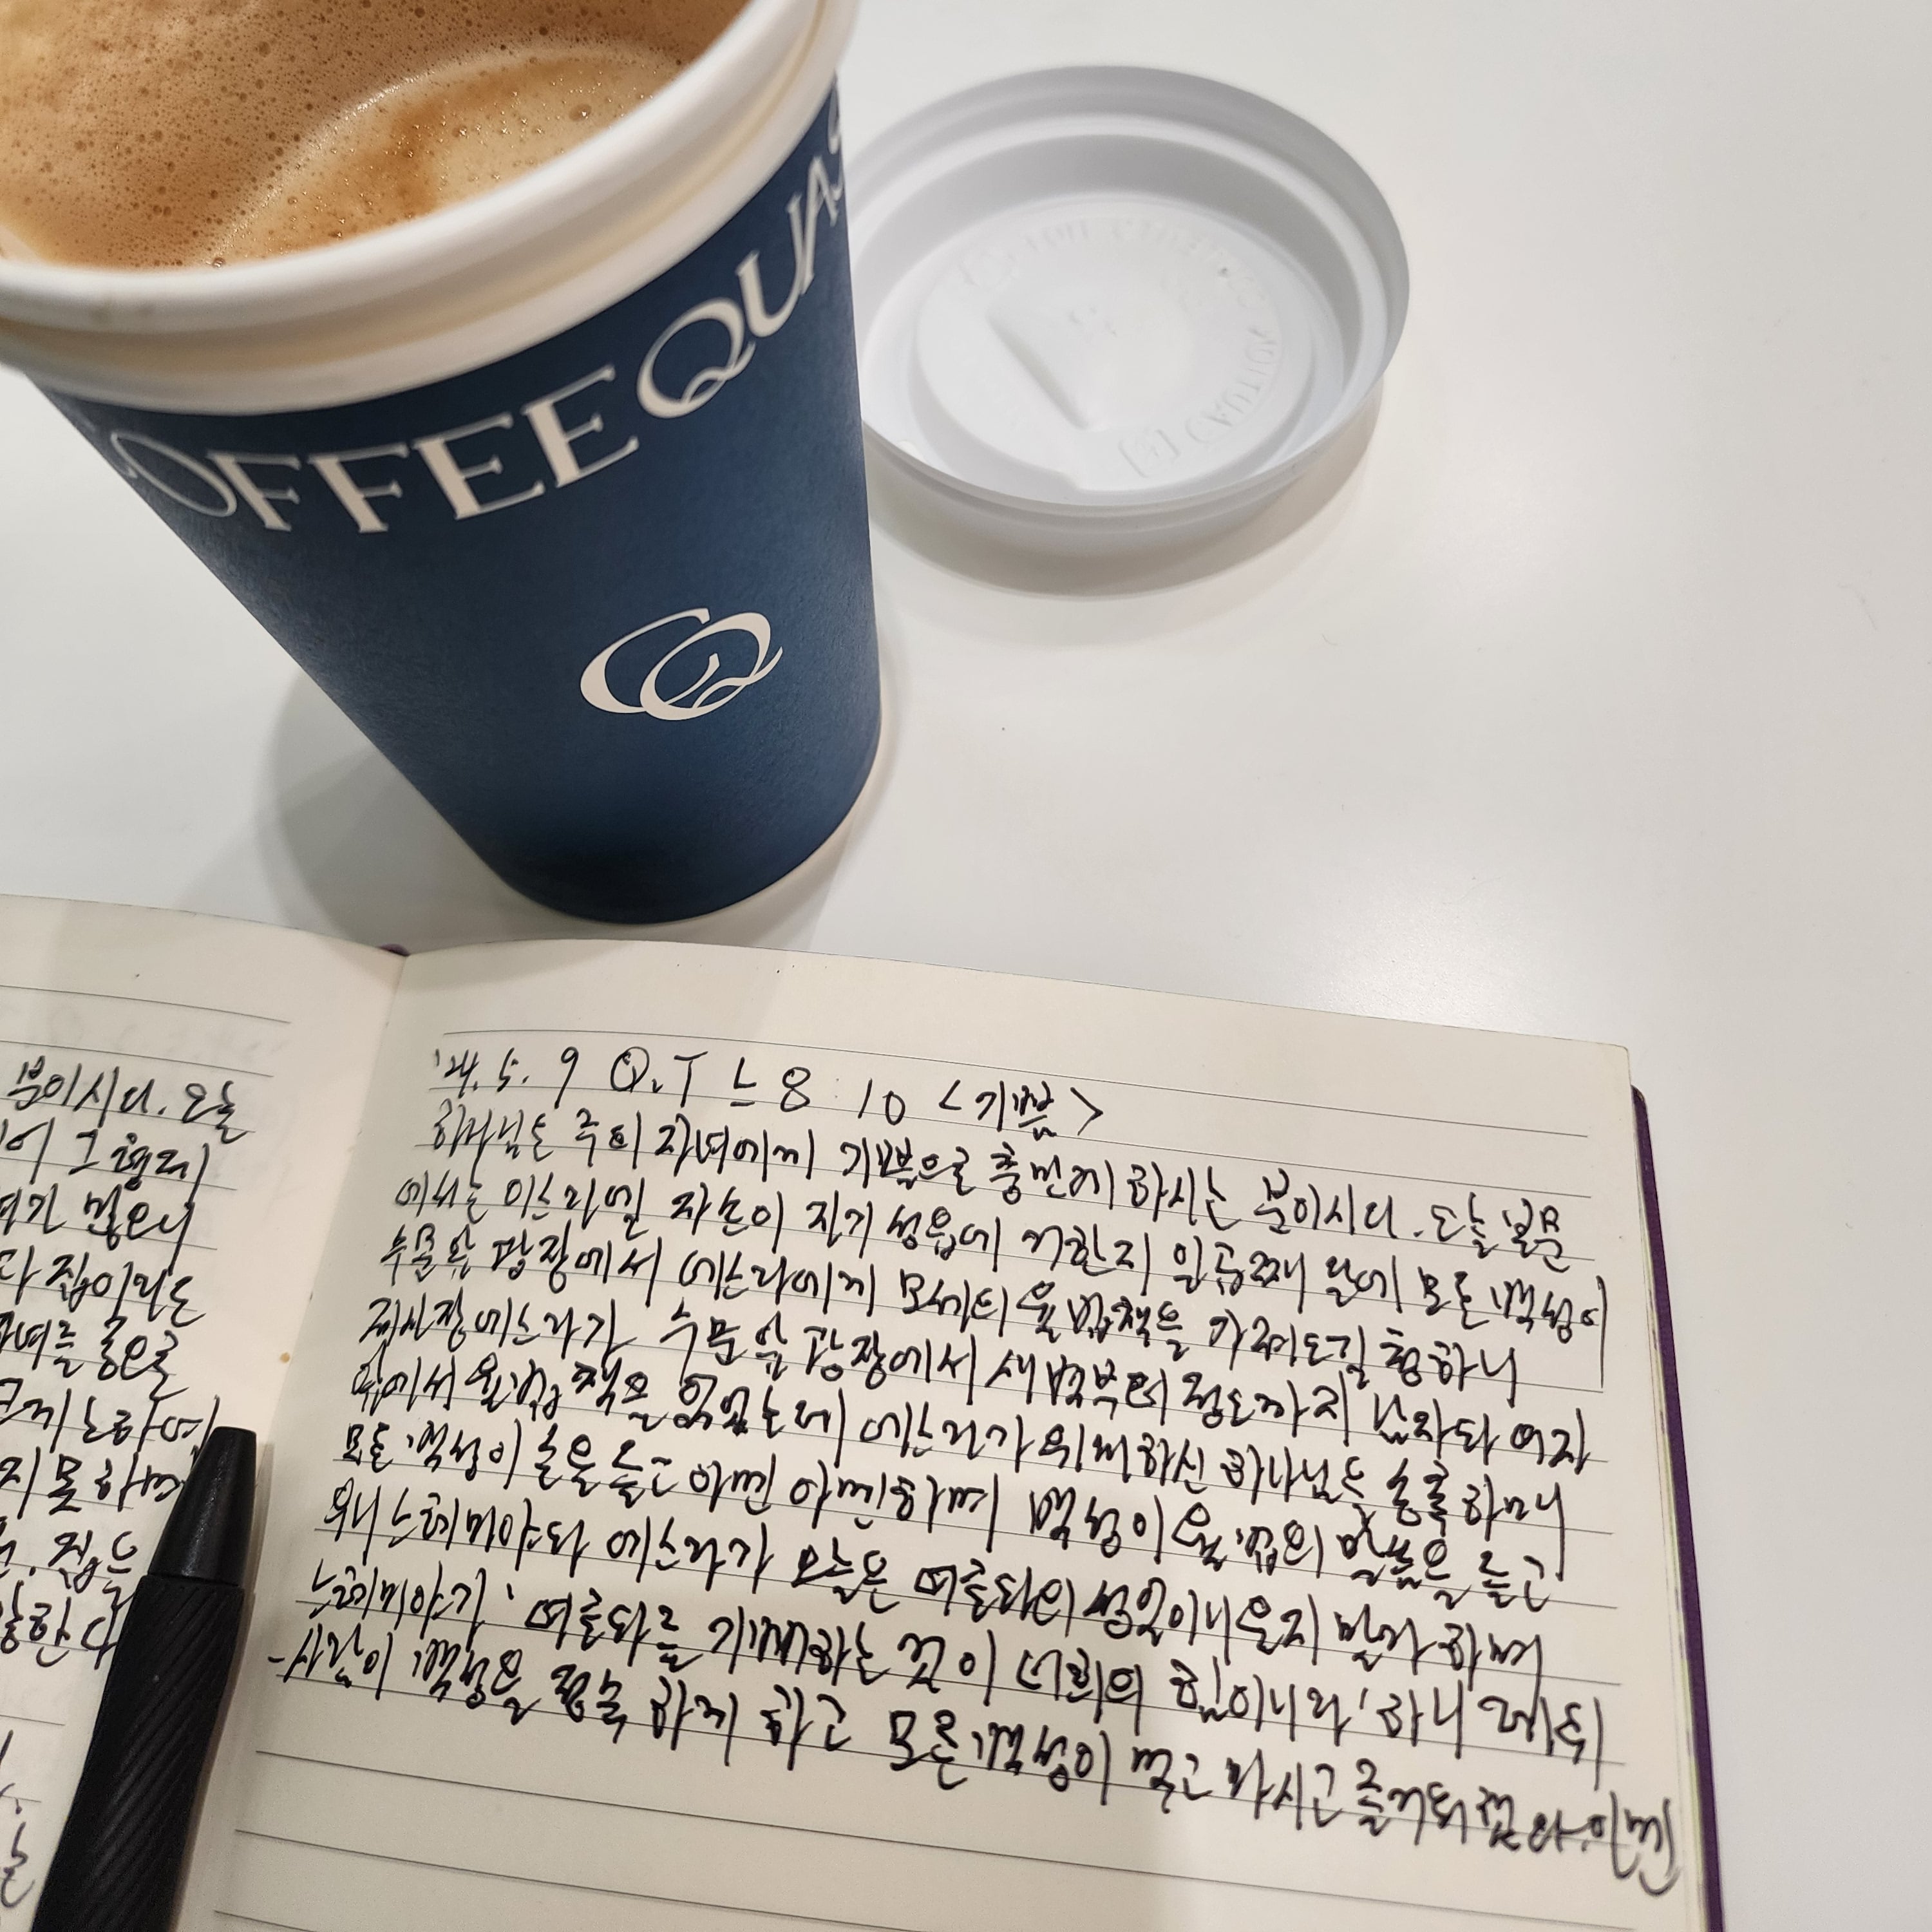 COFFEE QUA
CQ
분이시다. 오늘
많으니
다 집이라는
지 못하며
'24. 5. 9 Q.T 느 8 : 10 <기쁨>
하나님은 주의 자녀에게 기쁨으로 충만케 하시는 분이시다. 오늘 본문
에서는 이스라엘 자손이 자기 성읍에 거한지 일곱째 달에 모든 백성이
수문 앞 광장에서 에스라에게 모세의 율법책을 가져오길 청하니
제사장 에스라가 수문 앞 광장에서 새벽부터 정오까지 남자와 여자
앞에서 율법책을 읽었는데 에스라가 위대하신 하나님을 송축하매
모든 백성이 손을 들고 아멘 아멘하며 백성이 율법의 말씀을 듣고
우니 느헤미야와 에스라가 오늘은 여호와의 성일이니 울지 말라 하며
느헤미야가 '여호와를 기뻐하는 것이 너희의 힘이니라' 하니 레위
사람이 백성을 정숙하게 하고 모든 백성이 먹고 마시고 즐거워 했다. 아멘